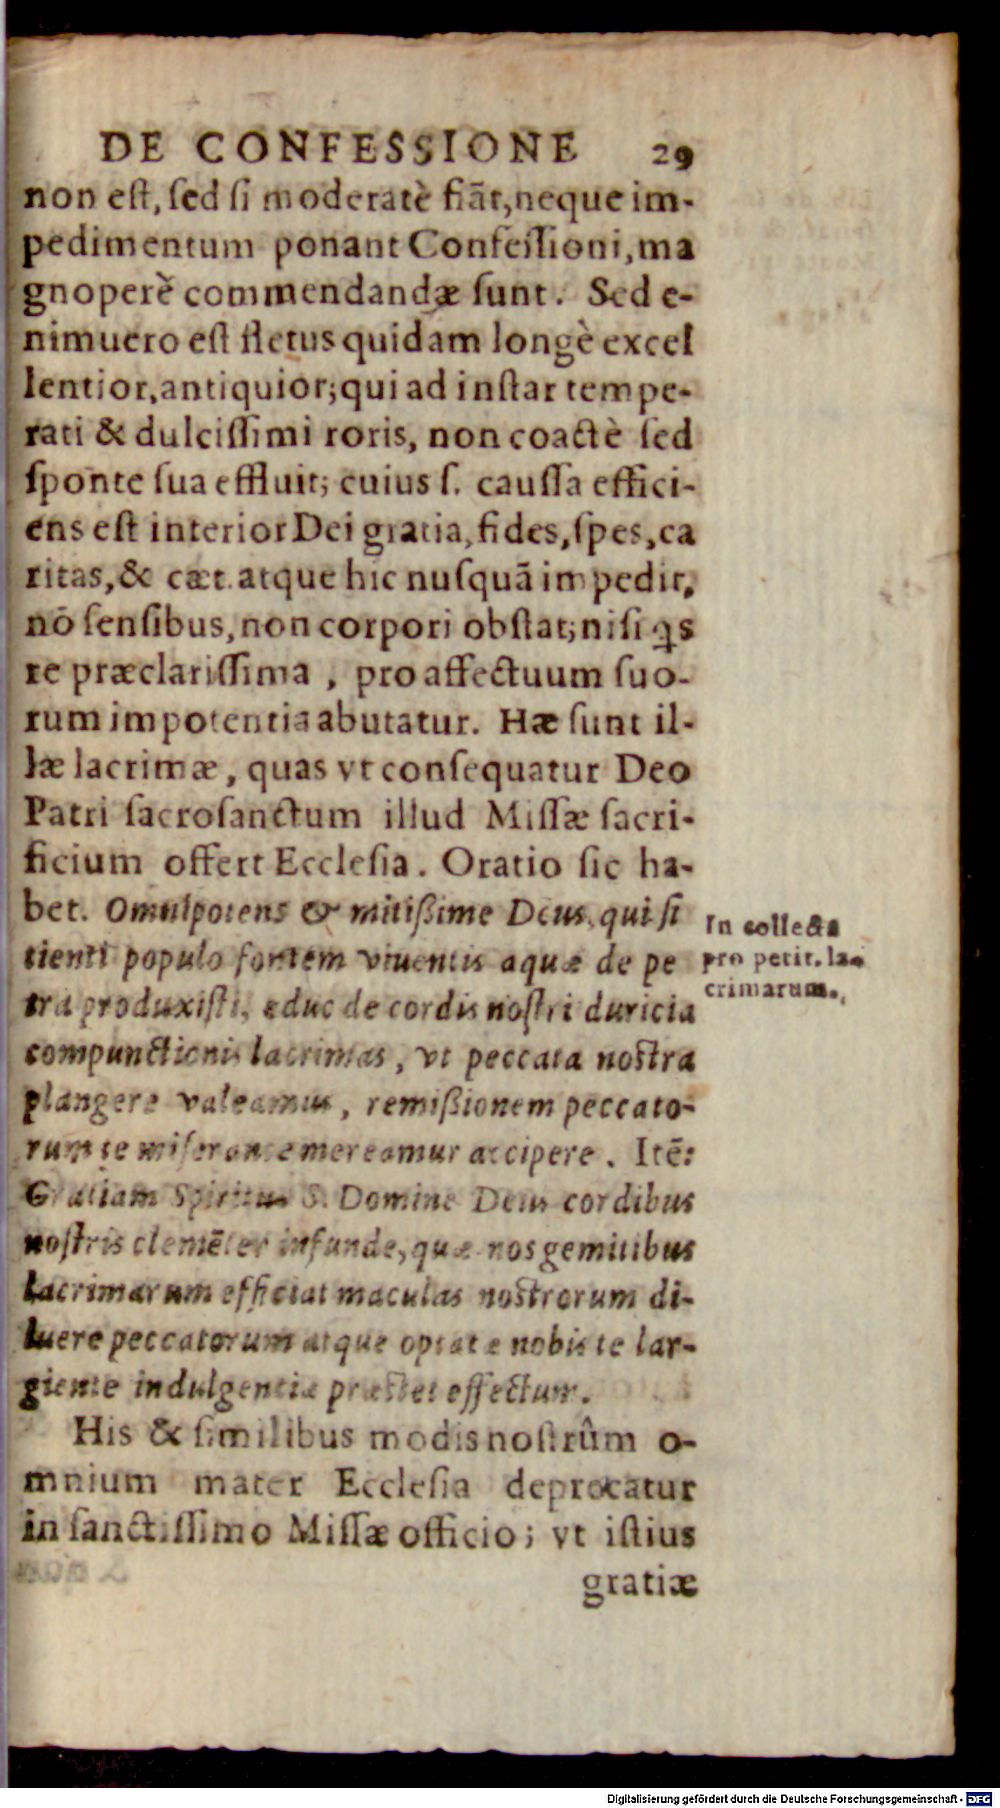 DE CONFESSIONE 29
non est, sed si moderatè fiāt, neque im-
pedimentum ponant Confessioni, ma
gnoperè commendandæ sunt. Sed e-
nimuero est fletus quidam longè excel
lentior, antiquior; qui ad instar tempe-
rati & dulcissimi roris, non coactè sed
sponte sua effluit; cuius s. caussa effici-
ens est interior Dei gratia, fides, spes, ca
ritas, & cæt. atque hic nusquā impedit,
nō sensibus, non corpori obstat; nisi qs
re præclarissima, pro affectuum suo-
rum impotentia abutatur. Hæ sunt il-
læ lacrimæ, quas vt consequatur Deo
Patri sacrosanctum illud Missæ sacri-
ficium offert Ecclesia. Oratio sic ha-
bet. Omnipotens & mitißime Deus, qui si
tienti populo fontem viuentis aquæ de pe
tra produxisti, educ de cordis nostri duricia
compunctionis lacrimas, vt peccata nostra
plangere valeamus, remißionem peccato-
rum te miserante mereamur accipere. Itē:
Gratiam Spiritus S. Domine Deus cordibus
nostris clemēter infunde, quæ nos gemitibus
lacrimarum efficiat maculas nostrorum di-
luere peccatorum atque optatæ nobis te lar-
giente indulgentiæ præstet effectum.
His & similibus modis nostrûm o-
mnium mater Ecclesia deprecatur
in sanctissimo Missæ officio; vt istius
gratiæ
In collecta
pro petit. la-
crimarum.
Digitalisierung gefördert durch die Deutsche Forschungsgemeinschaft - DFG